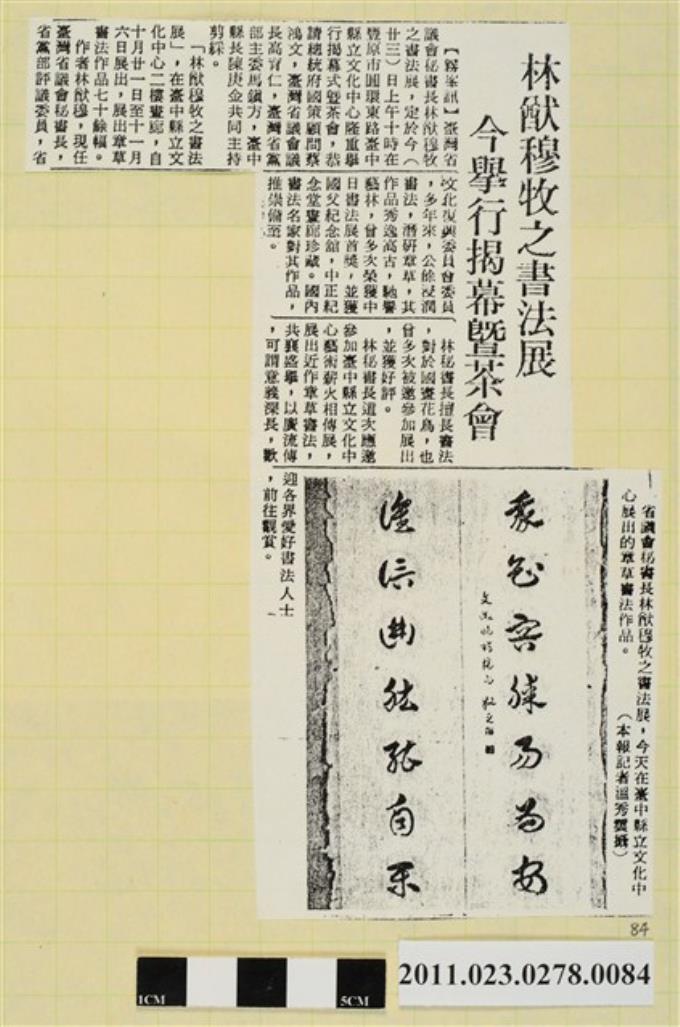 林猷穆牧之書法展
今舉行揭幕暨茶會
訊】臺灣省
議會秘書長林猷穆牧
之書法展，定於今（
廿三）日上午十時在
豐原市圓環東路臺中
縣立文化中心隆重舉
行揭幕式暨茶會，恭
請總統府國策顧問蔡
鴻文，臺灣省議會議
長高育仁，臺灣省黨
部主委馬鎮方，臺中
縣長陳庚金共同主持
剪綵。
「林猷穆牧之書法
展」，在臺中縣立文
化中心二樓畫廊，自
十月廿一日至十一月
六日展出，展出章草
書法作品七十餘幅。
作者林猷穆，現任
臺灣省議會秘書長，
省黨部評議委員，省
文化復興委員會委員
，多年來，公餘浸潤
書法，潛研章草，其
作品秀逸高古，馳譽
藝林，曾多次榮獲中
日書法展首獎，並獲
國父紀念館，中正紀
念堂畫廊珍藏。國內
書法名家對其作品，
推崇備至。
林秘書長擅長書法
，對於國畫花鳥，也
曾多次被邀參加展出
，並獲好評。
林秘書長這次應邀
參加臺中縣立文化中
心藝術薪火相傳展，
展出近作章草書法，
共襄盛舉，以廣流傳
，可謂意義深長，歡
迎各界愛好書法人士
，前往觀賞。
省議會秘書長林猷穆牧之書法展，今天在臺中縣立文化中
心展出的章草書法作品。（本報記者溫秀攝）
84
2011.023.0278.0084
1CM
5CM